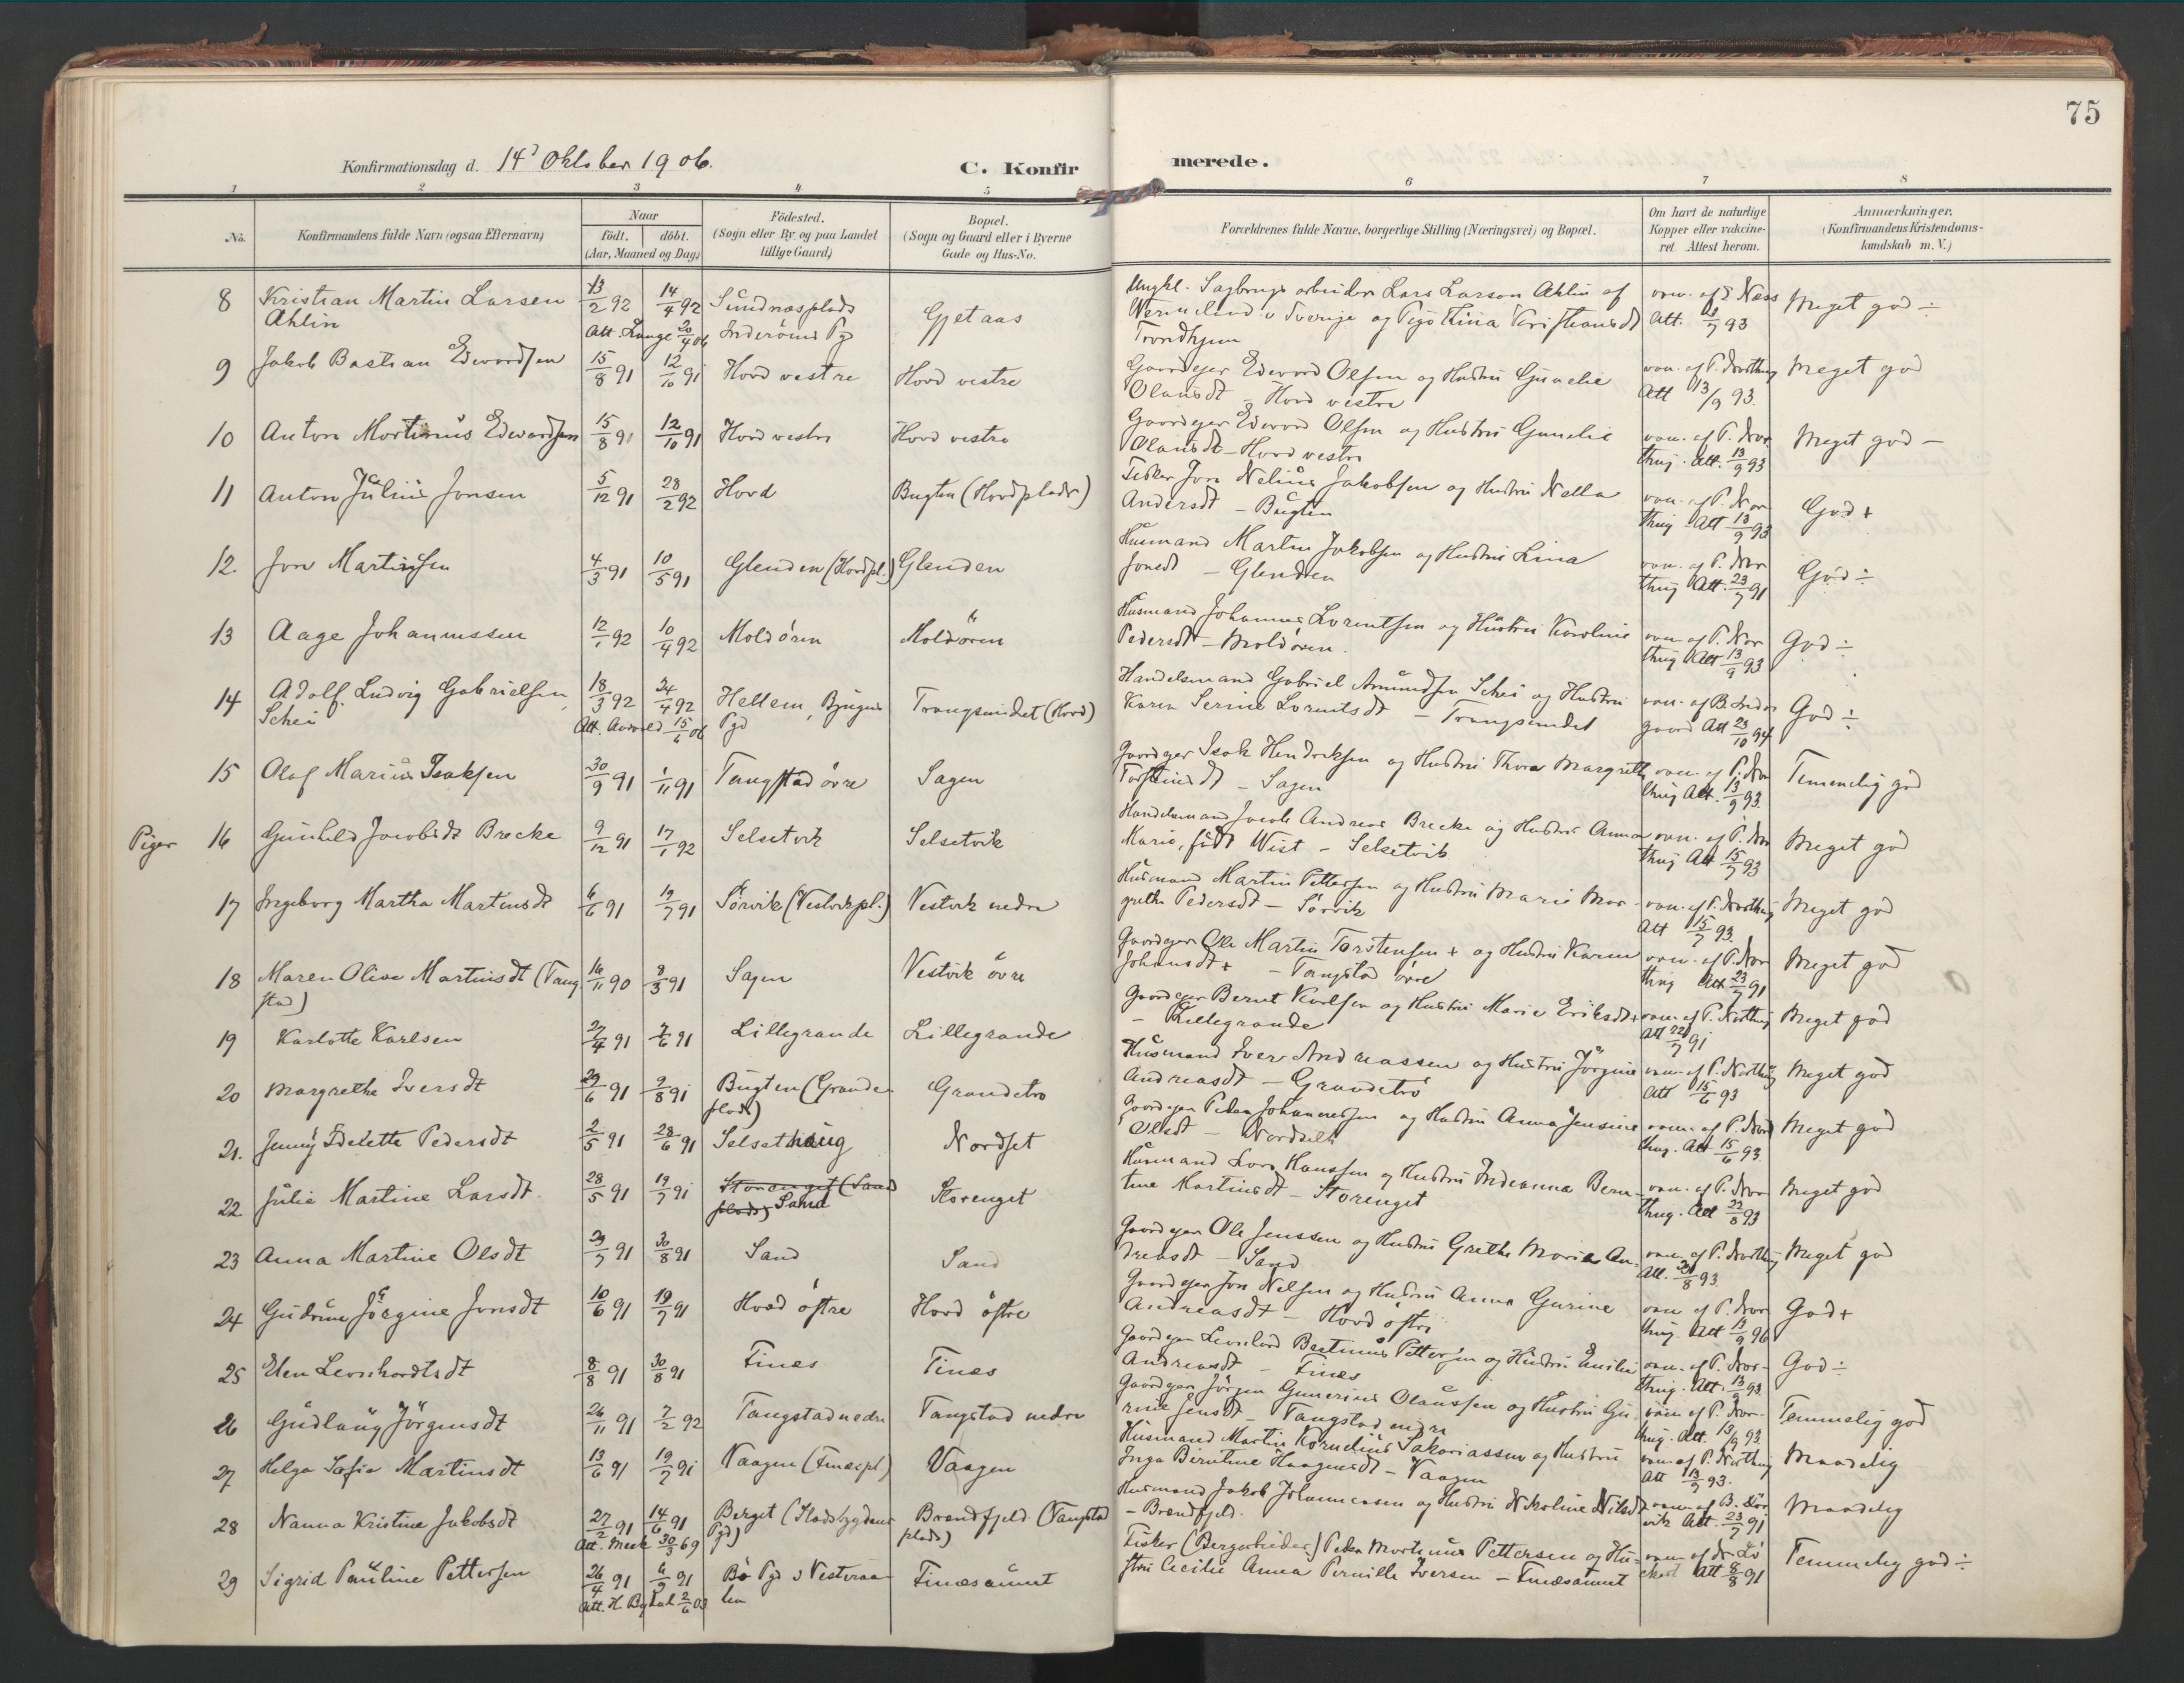 75
Konfirmationsdag d. 14d Oktober 1906.
C. Konfirmerede.
1 2 3 4 5 6 7 8
No.
Konfirmandens fulde Navn (ogsaa Efternavn)
Naar
födt. döbt.
(Aar, Maaned og Dag)
Födested.
(Sogn eller By, og paa Landet
tillige Gaard)
Bopæl.
(Sogn og Gaard eller i Byerne
Gade og Hus-No.
Forældrenes fulde Navne, borgerlige Stilling (Næringsvei) og Bopæl.
Om havt de naturlige
Kopper eller vakcine-
ret Attest herom.
Anmærkninger.
(Konfirmandens Kristendoms-
kundskab m. V.)
8 Kristian Martin Larsen 13/2 92 14/4 92 Sundnæsplads Gjetaas Ungk. Sagbrugsarbeider Lars Larson Ahlin af vac. af E Næss Meget god ÷
Ahlin Att. Lange 20/4 06 Inderøens Pgd Vermeland i Sverige og Pige Lina Kristiansdt Att. 93
Trondhjem
9 Jakob Bastian Edvardsen 15/8 91 12/10 91 Hovd vestre Hovd vestre Gaardejer Edvard Olsen og Hustru Gunelie vac. af P. Northug Meget god
Olausdt - Hovd vestre Att 13/9 93.
10 Anton Martinus Edvardsen 15/8 91 12/10 91 Hovd vestre Hovd vestre Gaardejer Edvard Olsen og Hustru Gunelie vac. af P. Nor Meget god -
Olausdt - Hovd vestre thug. Att. 13/9 93
11 Anton Julius Jonsen 5/12 91 28/2 92 Hovd Bugten (Hovdplads) Fisker Jon Nelius Jakobsen og Hustru Nella vac. af P. Nor God +
Andersdt - Bugten thug Att 13/9 93
12. Jon Martinsen 4/3 91 10/5 91 Glenden (Hovdpl.) Glenden Husmand Martin Jakobsen og Hustru Lina vac. af P. Nor God ÷
Jonsdt - Glenden thug Att. 23/7 91
13 Aage Johannessen 12/1 92 10/4 92 Moldören Moldören Husmand Johannes Lorentsen og Hustru Karoline vac. af P. Nor God ÷
Pedersdt - Moldören. thug Att 13/9 93
14 Adolf Ludvig Gabrielsen 18/3 92 24/4 92 Hellem, Bjugns Trangsundet (Hovd) Handelsmand Gabriel Amundsen Schei og Hustru vac. af B. God ÷
Schei Att. 15/6 06 Pgd Karen Serine Lorentsdt - Trangsundet gaard Att 23/10 94
15 Olaf Marius Isaksen 30/9 91 1/11 91 Tangstad övre Sagen Gaardejer Isak Hendriksen og Hustru Thora Margrethe vac. af P. Nor Temmelig god
Torstensdt - Sagen thug Att. 13/9 93.
Piger 16 Gunhild Jacobsdt Brecke 9/12 91 17/1 92 Selsetvik Selsetvik Handelsmand Jacob Andreas Brecke og Hustru Anna vac. af P. Nor Meget god
Marie, födt Wist - Selsetvik thug Att 15/7 93
17 Ingeborg Martha Martinsdt 6/6 91 19/7 91 Sörvik (Vestvikpl.) Vestvik nedre Husmand Martin Pettersen og Hustru Marie Mar- vac. af P. Northug Meget god
grethe Pedersdt - Sörvik Att 15/7 93.
18 Maren Oline Martinsdt (Tang 16/11 90 8/3 91 Sagen Vestvik övre Gaardejer Ole Martin Torstensen + og Hustru Karen vac. af P. Nor Meget god
stad) Johansdt + - Tangstad övre thug Att 23/7 91
19 Karlotte Karlsen 27/4 91 7/6 91 Lillegrande Lillegrande Gaardejer Bernt Karlsen og Hustru Marie Eriksdt + vac. af P. Northug Meget god
- Lillegrande Att 22/7 91
20 Margrethe Iversdt 29/6 91 9/8 91 Bugten (Grande- Grandetro Husmand Iver Andreassen og Hustru Jörgine vac. af P. Northug Meget god
plads) Andreasdt - Grandetrö Att 15/6 93
21. Jenny Idelette Pedersdt 2/5 91 28/6 91 Selsethaug Nordset Gaardejer Peder Johannessen og Hustru Anna Jensine vac. af P. Nord Meget god
Olsdt - Nordset thug. Att 15/6 93.
22 Julie Martine Larsdt. 28/5 91 19/7 91 Storenget (Sand Storenget Husmand Lars Hanssen og Hustru Indeanna Bern- vac. af P. Nor Meget god
plads) Sand tine Martinsdt - Storenget thug. Att 22/8 93
23 Anna Martine Olsdt 29/7 91 30/8 91 Sand Sand Gaardejer Ole Jenssen og Hustru Grethe Maria An- vac. af P. Northug Meget god
dreasdt - Sand Att. 8 93.
24 Gudrun Jörgine Jonsdt 10/6 91 19/7 91 Hovd östre Hovd östre Gaardejer Jon Nelsen og Hustru Anna Gurine vac. af P. Nor God +
Andreasdt - Hovd östre thug. Att 13/9 96
25 Elen Leonhardtsdt 8/8 91 30/8 91 Tinæs Tinæs Gaardejer Leonhard Beetinus Pettersen og Hustru Emilie vac. af P. Nor- God ÷
Andreasdt - Finæs thug. Att. 13/9 93.
26 Gudlaug Jörgensdt 26/11 91 7/2 92 Tangstad nedre Tangstad nedre Gaardejer Jörgen Gunerius Olaussen og Hustru Gu- vac. af P. Nor- Temmelig god
rine Jensdt - Tangstad nedre thug. Att. 13/9 93.
27 Helga Sofie Martinsdt 13/6 91 19/7 91 Vaagen (Finæspl) Vaagen Husmand Martin Kornelius Sakariassen og Hustru vac. af P. Northug Maadelig
Inga Berntine Haagensdt - Vaagen Att 13/9 93.
28 Nanna Kristine Jakobsdt 27/2 91 14/6 91 Berget (Stadsbygdens Brendfjeld (Tangstad Husmand Jakob Johannessen og Hustru Nikoline Nilsdt vac. af B. Maadelig
Att. 30/3 69 Pgd) plads) - Brendfjeld. Att. 23/7 91
29 Sigrid Pauline Pettersen 26/4 91 6/9 91 Bö Pgd i Vesteraa- Finæsaunet Fisker (Bergarbeider) Peder Martinus Pettersen og Hu- vac. af Temmelig god ÷
Att. H. 2/6 03 len stru Cecilie Anna Pernille Iversen - Finæsaunet Att 8/8 91